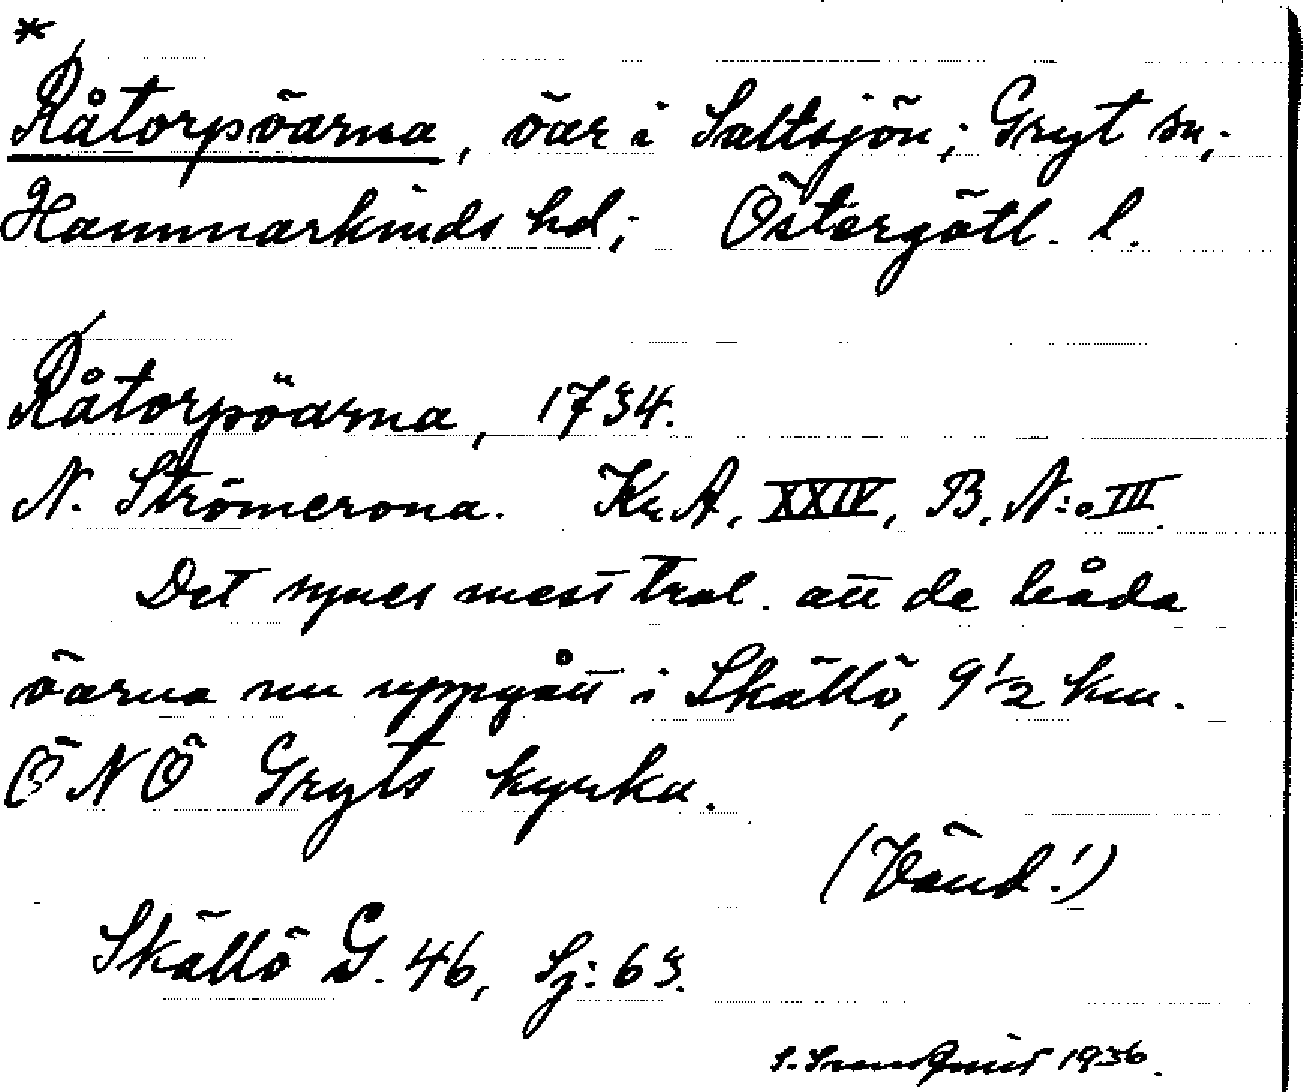 *
Råtorpöarna, öar i Saltsjön; Gryt sn;
Hammarkinds hd; Östergötl. l.
Råtorpöarna, 1734.
N. Strömcrona. Kr. A. XXIV, B. N:o III.
Det synes mest trol. att de båda
öarna nu uppgått i Skällö, 9 1/2 km.
ÖNÖ Gryts kyrka.
(Vänd!)
Skällö G. 46, Sj: 63.
1936.